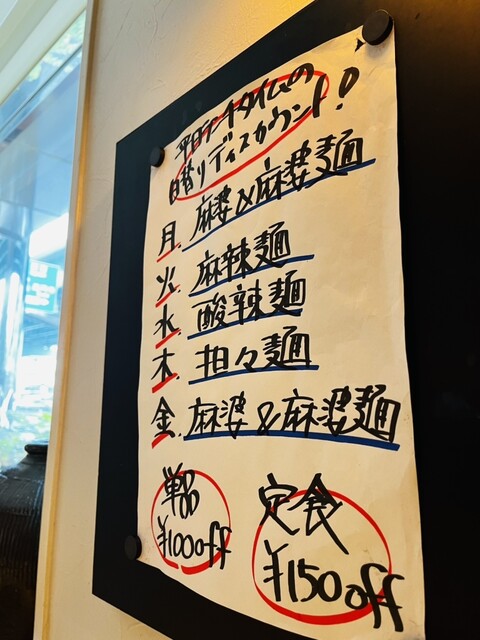 平日ランチタイムの
日替りディスカウント!
月. 麻婆&麻婆麺
火. 麻辣麺
水. 酸辣麺
木. 担々麺
金. 麻婆&麻婆麺
単品
¥100off
定食
¥150off